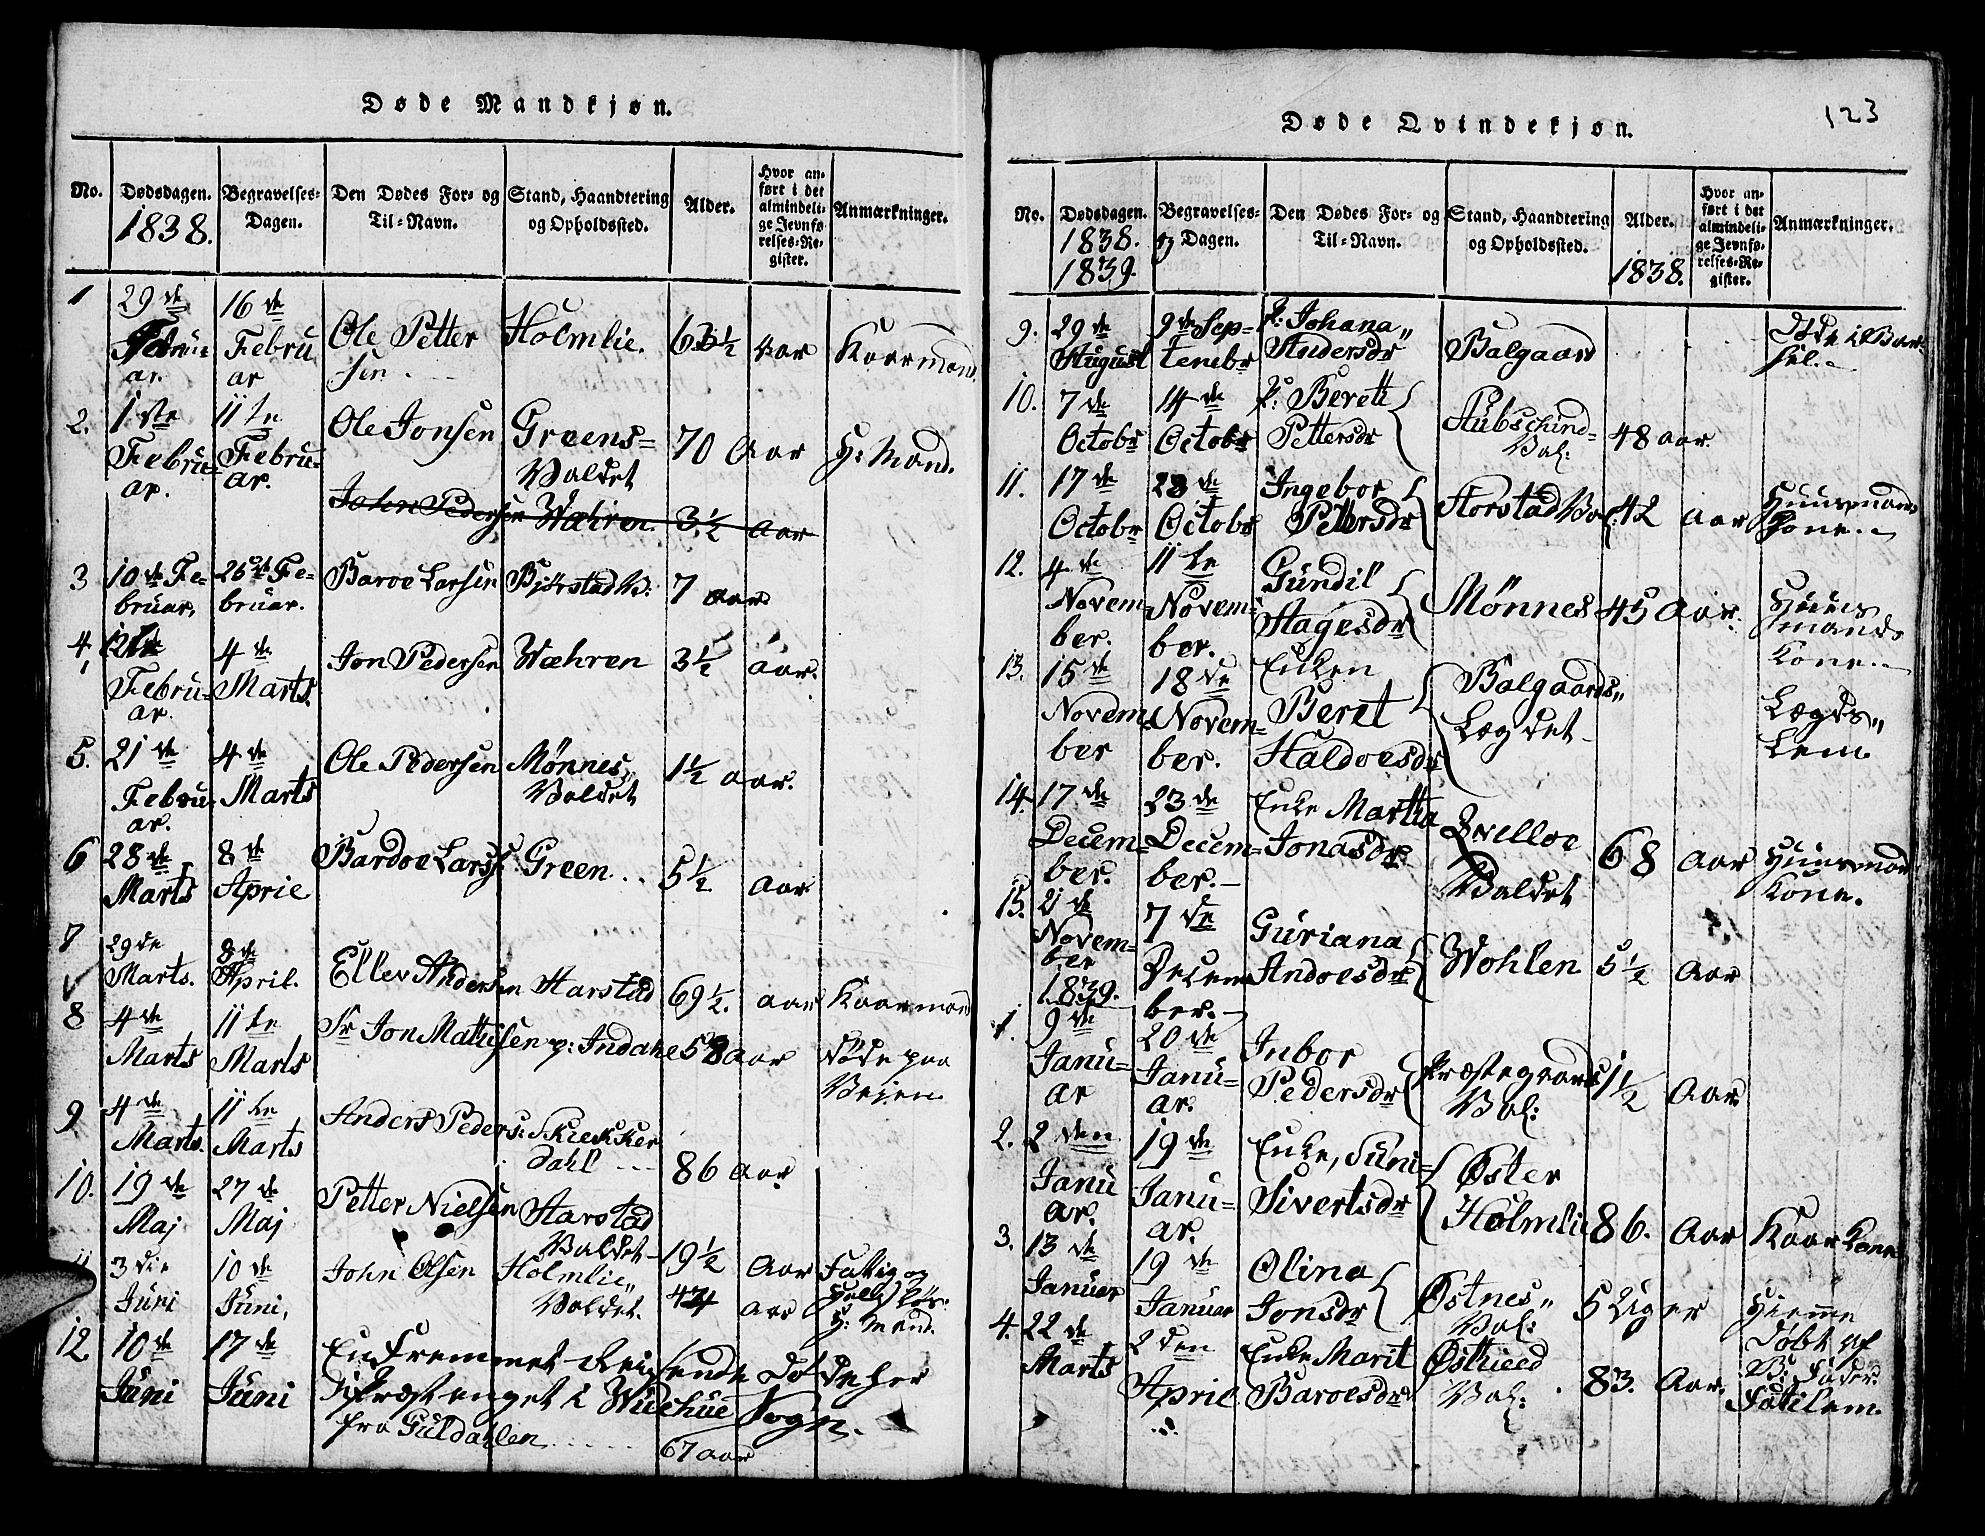 Døde Mandkjøn.
No. Dødsdagen. 1838. Begravelses-Dagen. Den Dødes For- og Til-Navn. Stand, Haandtering og Opholdssted. Alder. Hvor anført i det almindelige Jevnførelses-Register. Anmærkninger.
1 29de Februar. 16de Februar Ole Pettersen Holmlie. 63½ Aar Kaarmand.
2. 1ste Februar. 11te Februar. Ole Jonsen Greens-Valdet 70 Aar H: Mand.
John Pedersen Wæhren. 3½ Aar
3 10de Februar, 25de Februar. Baroe Larsen Bjørstad V: 7 aar.
4, 12te Februar. 4de Marts. Jon Pedersen Wæhren 3½ aar.
5. 21de Februar. 4de Marts Ole Pedersen Mønnes Valdet 1½ aar.
6 28de Marts 8de Aprie Bardoe Larss: Green... 5½ Aar
7 29de Marts. 8de April. Ellev Andersen Harstad 69½. aar Kaarmand
8 4de Marts 11te Marts Sr Jon Matusen p: Indahl 58 aar Døde paa Veien
9 4de Marts. 11te Marts Anders Peders: Skiekkerdahl 86 Aar
10. 19de Maj 27de Maj Petter Nielsen Harstad Valdet 19½ Aar
3die Juni 10de Juni, John Olsen Holmlie,, Valdet. 44 aar Fattig og H: Mand.
12 10de Juni 17de Juni En Fremmet Reisende Døde her
i Præstenget i Sogn.
fra Guldahlen..... 67 aar
Døde Qvindekjøn.
123
No. Dødsdagen. 1838. 1839. Begravelses-Dagen. Den Dødes For- og Til-Navn. Stand, Haandtering og Opholdssted. Alder. 1838. Hvor anført i det almindelige Jevnførelses-Register. Anmærkninger.
9. 29de August 9de September p: Johana,, Andersdr Balgaard Døde i Barsel.
10. 7de Octobr 14de Octobr p: Berett Pettersdr Val: 48 aar
11. 17de Octobr 28de Octobr Ingebor Pettersdr Storstad Val: 42 aar Huusmands Kone.
12. 4de November. 11te November. Gundil Hagesdr Mønnes 45 Aar. Huusmands Kone.
13. 15de November 18de November. Enken Beret Haldoesdr Balgaards,, Lægdet Lægds,, Lem
14. 17de December. 23de December. Enke Martha Jonasdr Valdet 68 aar Huusmand Kone.
15. 2de November 7de December. Guriana Andoesdr Wohlen 5½ Aar
1839.
1. 9de Januar 20de Januar. Inbor Pedersdr Præstegaards Val: 1½ Aar
2. 2den Januar. 19de Januar. Enke, Suni Sivertsdr Øster Holmlie 86. Aar Kaar Kone
3. 13de Januar 19de Januar Olina Jonsdr Østnes,, Val: 5 Uger Hiemme Døbt af B: Fader.
4. 22de Marts 2den Aprie Enke Marit Baroesdr Val: 83. Aar. Fattilem.